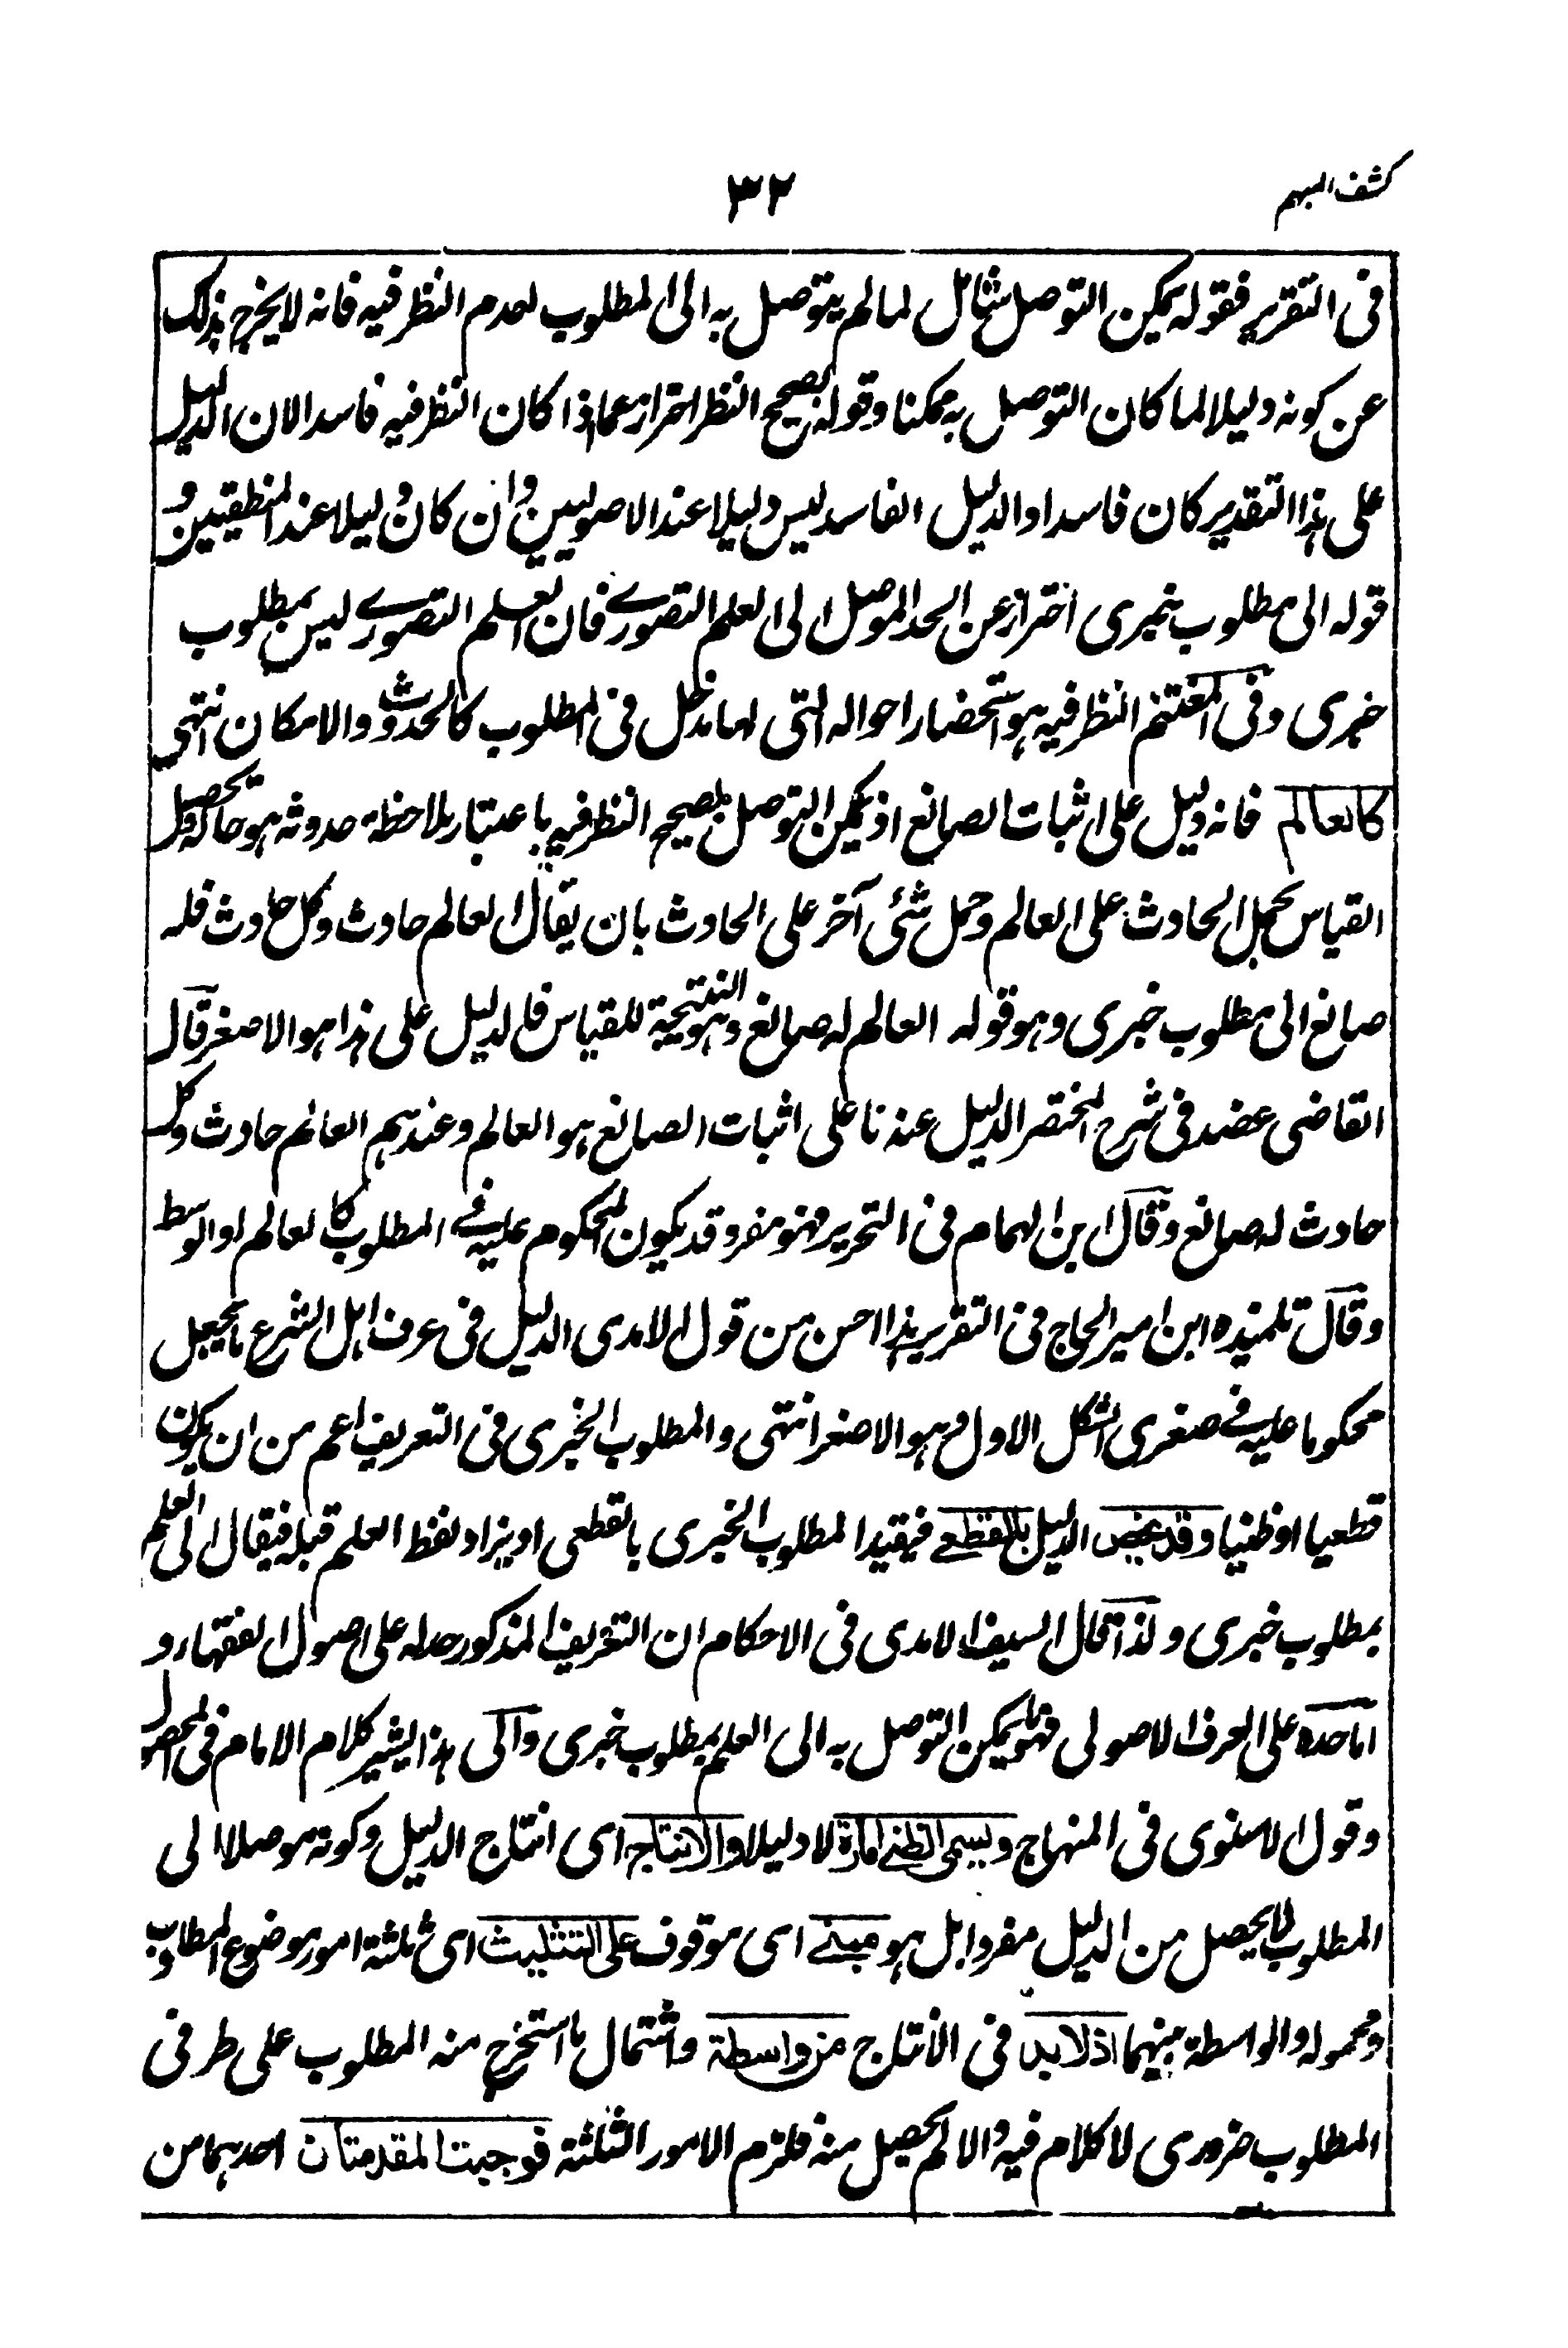 كشف المبهم
٣٢
فى التقرير فقوله يمكن التوصل شامل لما لم يتوصل به الى المطلوب لعدم النظر فيه فانه لا يخرج بذلك
عن كونه دليلا لما كان التوصل به ممكنا وقوله بصحيح النظر احتراز عما اذا كان النظر فيه فاسدا لان الدليل
على هذا التقدير كان فاسدا والدليل الفاسد ليس دليلا عند الاصوليين وان كان دليلا عند المنطقيين و
قوله الى مطلوب خبرى احتراز عن الحد الموصل الى العلم التصورے فان العلم التصورے ليس بمطلوب
خبرى وفى المغتنم النظر فيه هو استحضار احواله التى لها مدخل فى المطلوب كالحدوث والامكان انتهى
كالعالم فانه دليل على اثبات الصانع اذ يمكن التوصل بصحيح النظر فيه باعتبار ملاحظة حدوثه هو حاله وتحصيل
القياس بحمل الحادث على العالم وحمل شئ آخر على الحادث بان يقال العالم حادث وكل حادث فله
صانع الى مطلوب خبرى وهو قوله العالم له صانع وهو النتيجة للقياس فالدليل على هذا هو الاصغر قال
القاضى عضد فى شرح المختصر الدليل عندنا على اثبات الصانع هو العالم وعندهم العالم حادث وكل
حادث له صانع وقال ابن الهمام فى التحرير فهو مفرد قد يكون المحكوم عليه فے المطلوب كالعالم او الوسط
وقال تلميذه ابن امير الحاج فى التقرير هذا احسن من قول الامدى الدليل فى عرف اهل الشرع ما يجعل
محكوما عليه فے صغرى الشكل الاول وهو الاصغر انتهى والمطلوب الخبرى فى التعريف اعم من ان يكون
قطعيا او ظنيا وقد يخص الدليل بالقطعے فيقيد المطلوب الخبرى بالقطعى او يزاد لفظ العلم قبله فيقال الى العلم
بمطلوب خبرى ولذا قال السيف الامدى فى الاحكام ان التعريف المذكور حده على اصول الفقهاء و
اما حده على العرف الاصولى فهو ما يمكن التوصل به الى العلم بمطلوب خبرى والى هذا يشير كلام الامام فى المحصول
وقول الاسنوى فى المنهاج ويسمى الظنے امارة لا دليلا والانتاج اى انتاج الدليل وكونه موصلا الى
المطلوب لما يحصل من الدليل مفردا بل هو مبنے اى موقوف على التثليث اى ثلثة امور موضوع المطلوب
ومحموله والواسطة بينهما اذ لا بد فى الانتاج من واسطة واشتمال ما استخرج منه المطلوب على طرفى
المطلوب ضرورى لا كلام فيه والا لم يحصل منه فلزم الامور الثلثة فوجبت المقدمتان احدهما من